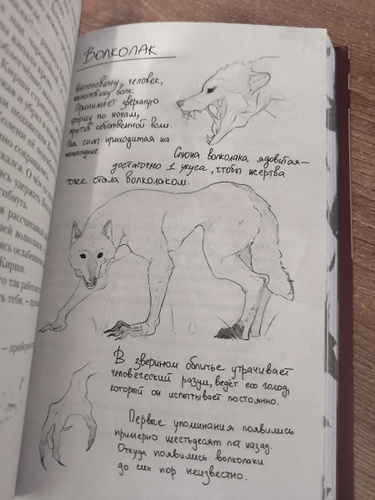 Волколак
Наполовину, человек,
наполовину волк.
Принимает звериную
форму по ночам,
против собственной воли.
Пик силы приходится на
полнолуние.
Слюна волколака ядовитая—
достаточно 1 укуса, чтобы жертва
тоже стала волколаком.
В зверином обличье утрачивает
человеческий разум, ведёт его голод,
который он испытывает постоянно.
Первые упоминания появились
примерно шестьдесят лет назад.
Откуда появились волколаки
до сих пор неизвестно.